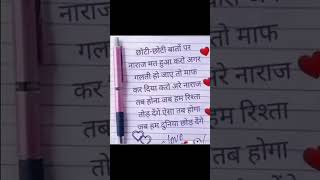 छोटी-छोटी बातों पर
नाराज मत हुआ करो अगर
गलती हो जाए तो माफ
कर दिया करो अरे नाराज
तब होना जब हम रिश्ता
तोड़ देंगे ऐसा तब होगा
जब हम दुनिया छोड़ देंगे
love